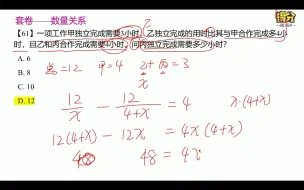 套卷——数量关系
【61】一项工作甲独立完成需要3小时，乙独立完成的用时比其与甲合作完成多4小
时，且乙和丙合作完成需要4小时。问丙独立完成需要多少小时？
A. 6
B. 8
C. 10
D. 12
总=12 甲=4 乙+丙=3
x
12/x - 12/(4+x) = 4 x·(4+x)
12(4+x) - 12x = 4x(4+x)
48 = 4x